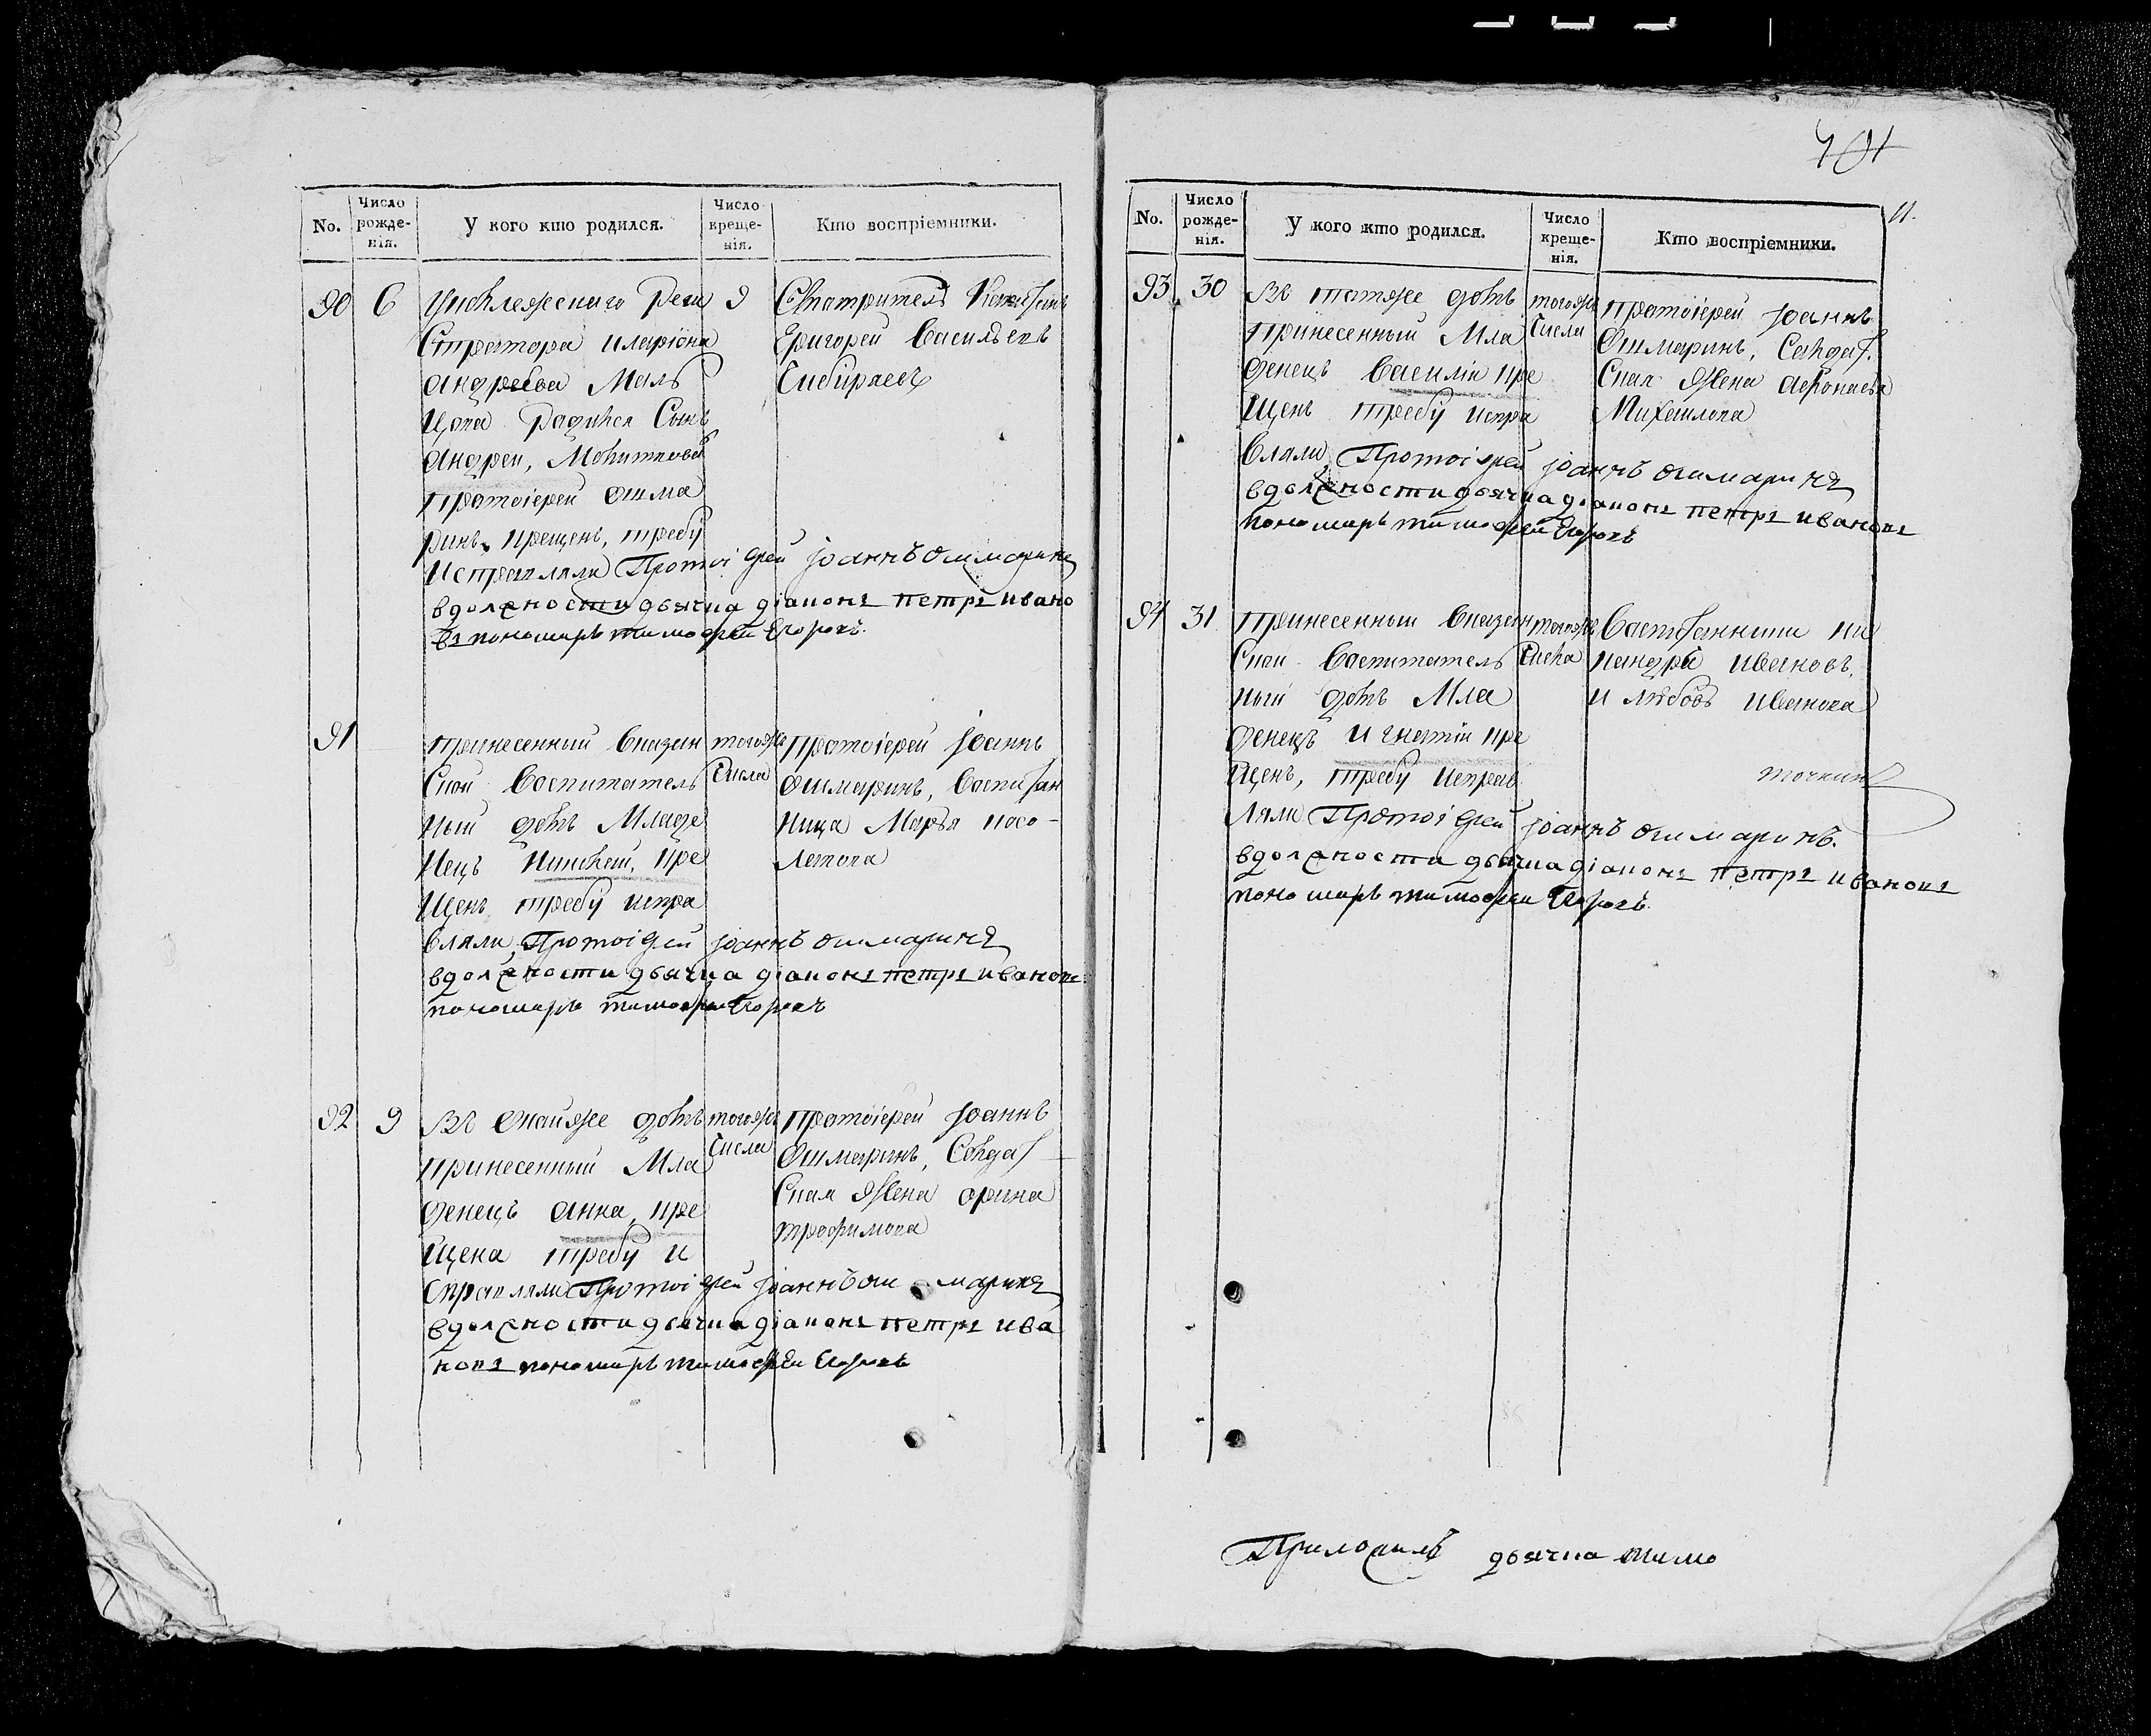 No.
Число рожде-нія.
У кого кто родился.
Число креще-нія.
Кто воспріемники.
90
6
Реги
стратора иларіона
андреева Маль
цова родился Сынъ
андрей, Молитвовалъ
протоіерей ошма
ринъ, крещенъ, требу
исправляли Протоіерей іоаннъ ошмаринъ
вдолжности дьячка діаконъ петръ ивано
въ пономарь тимофей Егоровъ.
9
Смотритель
Григорей Васильевъ
Сибиряевъ
91
принесенный вказан
скои воспитатель
ныи домъ Младе
нецъ Николай, кре
щенъ требу испра
вляли, Протоіерей іоаннъ ошмаринъ
вдолжности дьячка діаконъ петръ ивановъ
пономарь тимофей Егоровъ
тогожъ
Числа
протоіерей іоаннъ
ошмаринъ, воспитан
ница Марья
92
9
Въ оной же домъ
принесенный Мла
денецъ анна, кре
щена требу и
справляли Протоіерей іоаннъ ошмаринъ
вдолжности дьячка діаконъ петръ ива
новъ пономарь тимофей Егоровъ
тогожъ
Числа
протоіерей іоаннъ
Ошмаринъ, Солдат
ская Жена орина
трофимова
11.
No.
Число рожде-нія.
У кого кто родился.
Число креще-нія.
Кто воспріемники.
93
30
Въ тотже домъ
принесенный Мла
денецъ Василій кре
щенъ требу испра
вляли, Протоіерей іоаннъ ошмаринъ
вдолжности дьячка діаконъ петръ ивановъ
пономарь тимофей Егоровъ
тогожъ
Числа
протоіерей іоаннъ
Ошмаринъ, Солдат
ская Жена афонасья
Михаилова
94
31
принесенныи вказан
скои воспитатель
ныи домъ Мла
денецъ игнатій кре
щенъ, требу исправ
ляли Протоіерей іоаннъ ошмаринъ.
вдолжности дьячка діаконъ петръ ивановъ
пономарь тимофей Егоровъ.
тогожъ
Числа
Воспитанники ни
кандръ ивановъ,
и любовь иванова
Приложилъ дьячка тимо